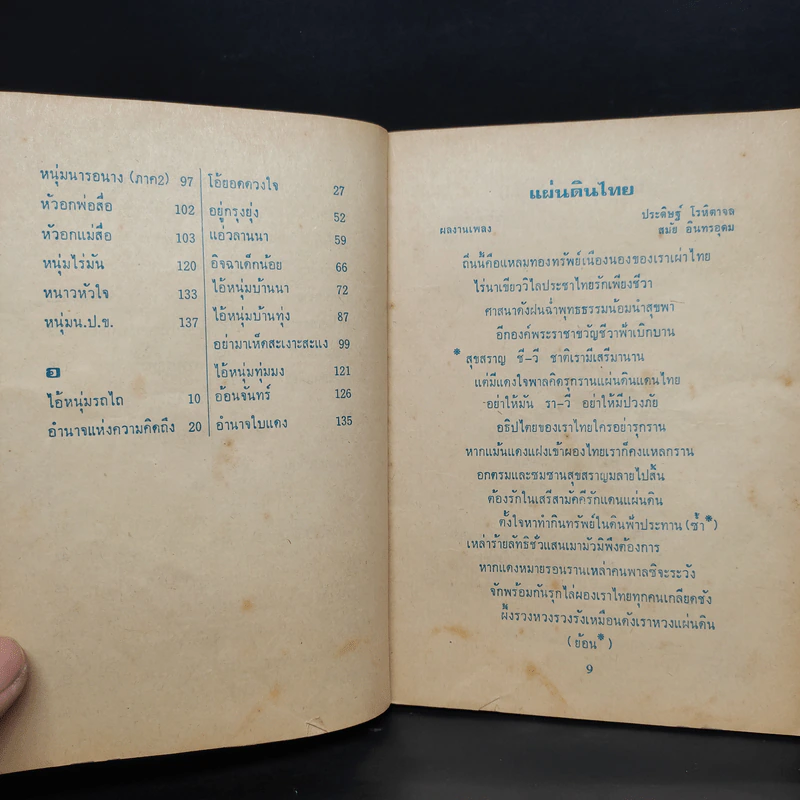 หนุ่มนารอนาง (ภาค2) 97
หัวอกพ่อสื่อ 102
หัวอกแม่สื่อ 103
หนุ่มไร่มัน 120
หนาวหัวใจ 133
หนุ่มน.ป.ข. 137
อ
ไอ้หนุ่มรถไถ 10
อำนาจแห่งความคิดถึง 20
โอ้ยอดดวงใจ 27
อยู่กรุงยุ่ง 52
แอ่วลานนา 59
อิจฉาเด็กน้อย 66
ไอ้หนุ่มบ้านนา 72
ไอ้หนุ่มบ้านทุ่ง 87
อย่ามาเห็ดสะเงาะสะแงง 99
ไอ้หนุ่มทุ่มมง 121
อ้อนจันทร์ 126
อำนาจใบแดง 135
แผ่นดินไทย
ประดิษฐ์ โรหิตาจล
ผลงานเพลง สมัย อินทรอุดม
ถิ่นนี้คือแหลมทองทรัพย์เนืองนองของเราเผ่าไทย
ไร่นาเขียววิไลประชาไทยรักเพียงชีวา
ศาสนาดังฝนฉ่ำพุทธธรรมน้อมนำสุขพา
อีกองค์พระราชาขวัญชีวาฟ้าเบิกบาน
* สุขสราญ ชี-วี ชาติเรามีเสรีมานาน
แต่มีแดงใจพาลคิดรุกรานแผ่นดินแดนไทย
อย่าให้มัน รา-วี อย่าให้มีปวงภัย
อธิปไตยของเราไทยใครอย่ารุกราน
หากแม้นแดงแฝงเข้าผองไทยเราก็คงแหลกราน
อกตรมและซมซานสุขสราญมลายไปสิ้น
ต้องรักในเสรีสามัคคีรักแดนแผ่นดิน
ตั้งใจหาทำกินทรัพย์ในดินฟ้าประทาน (ซ้ำ*)
เหล่าร้ายลัทธิชั่วแสนเมามัวมิพึงต้องการ
หากแดงหมายรอนรานเหล่าคนพาลซิจะระวัง
จักพร้อมกันรุกไล่ผองเราไทยทุกคนเกลียดชัง
ผึ้งรวงหวงรวงรังเหมือนดังเราหวงแผ่นดิน
(ย้อน*)
9